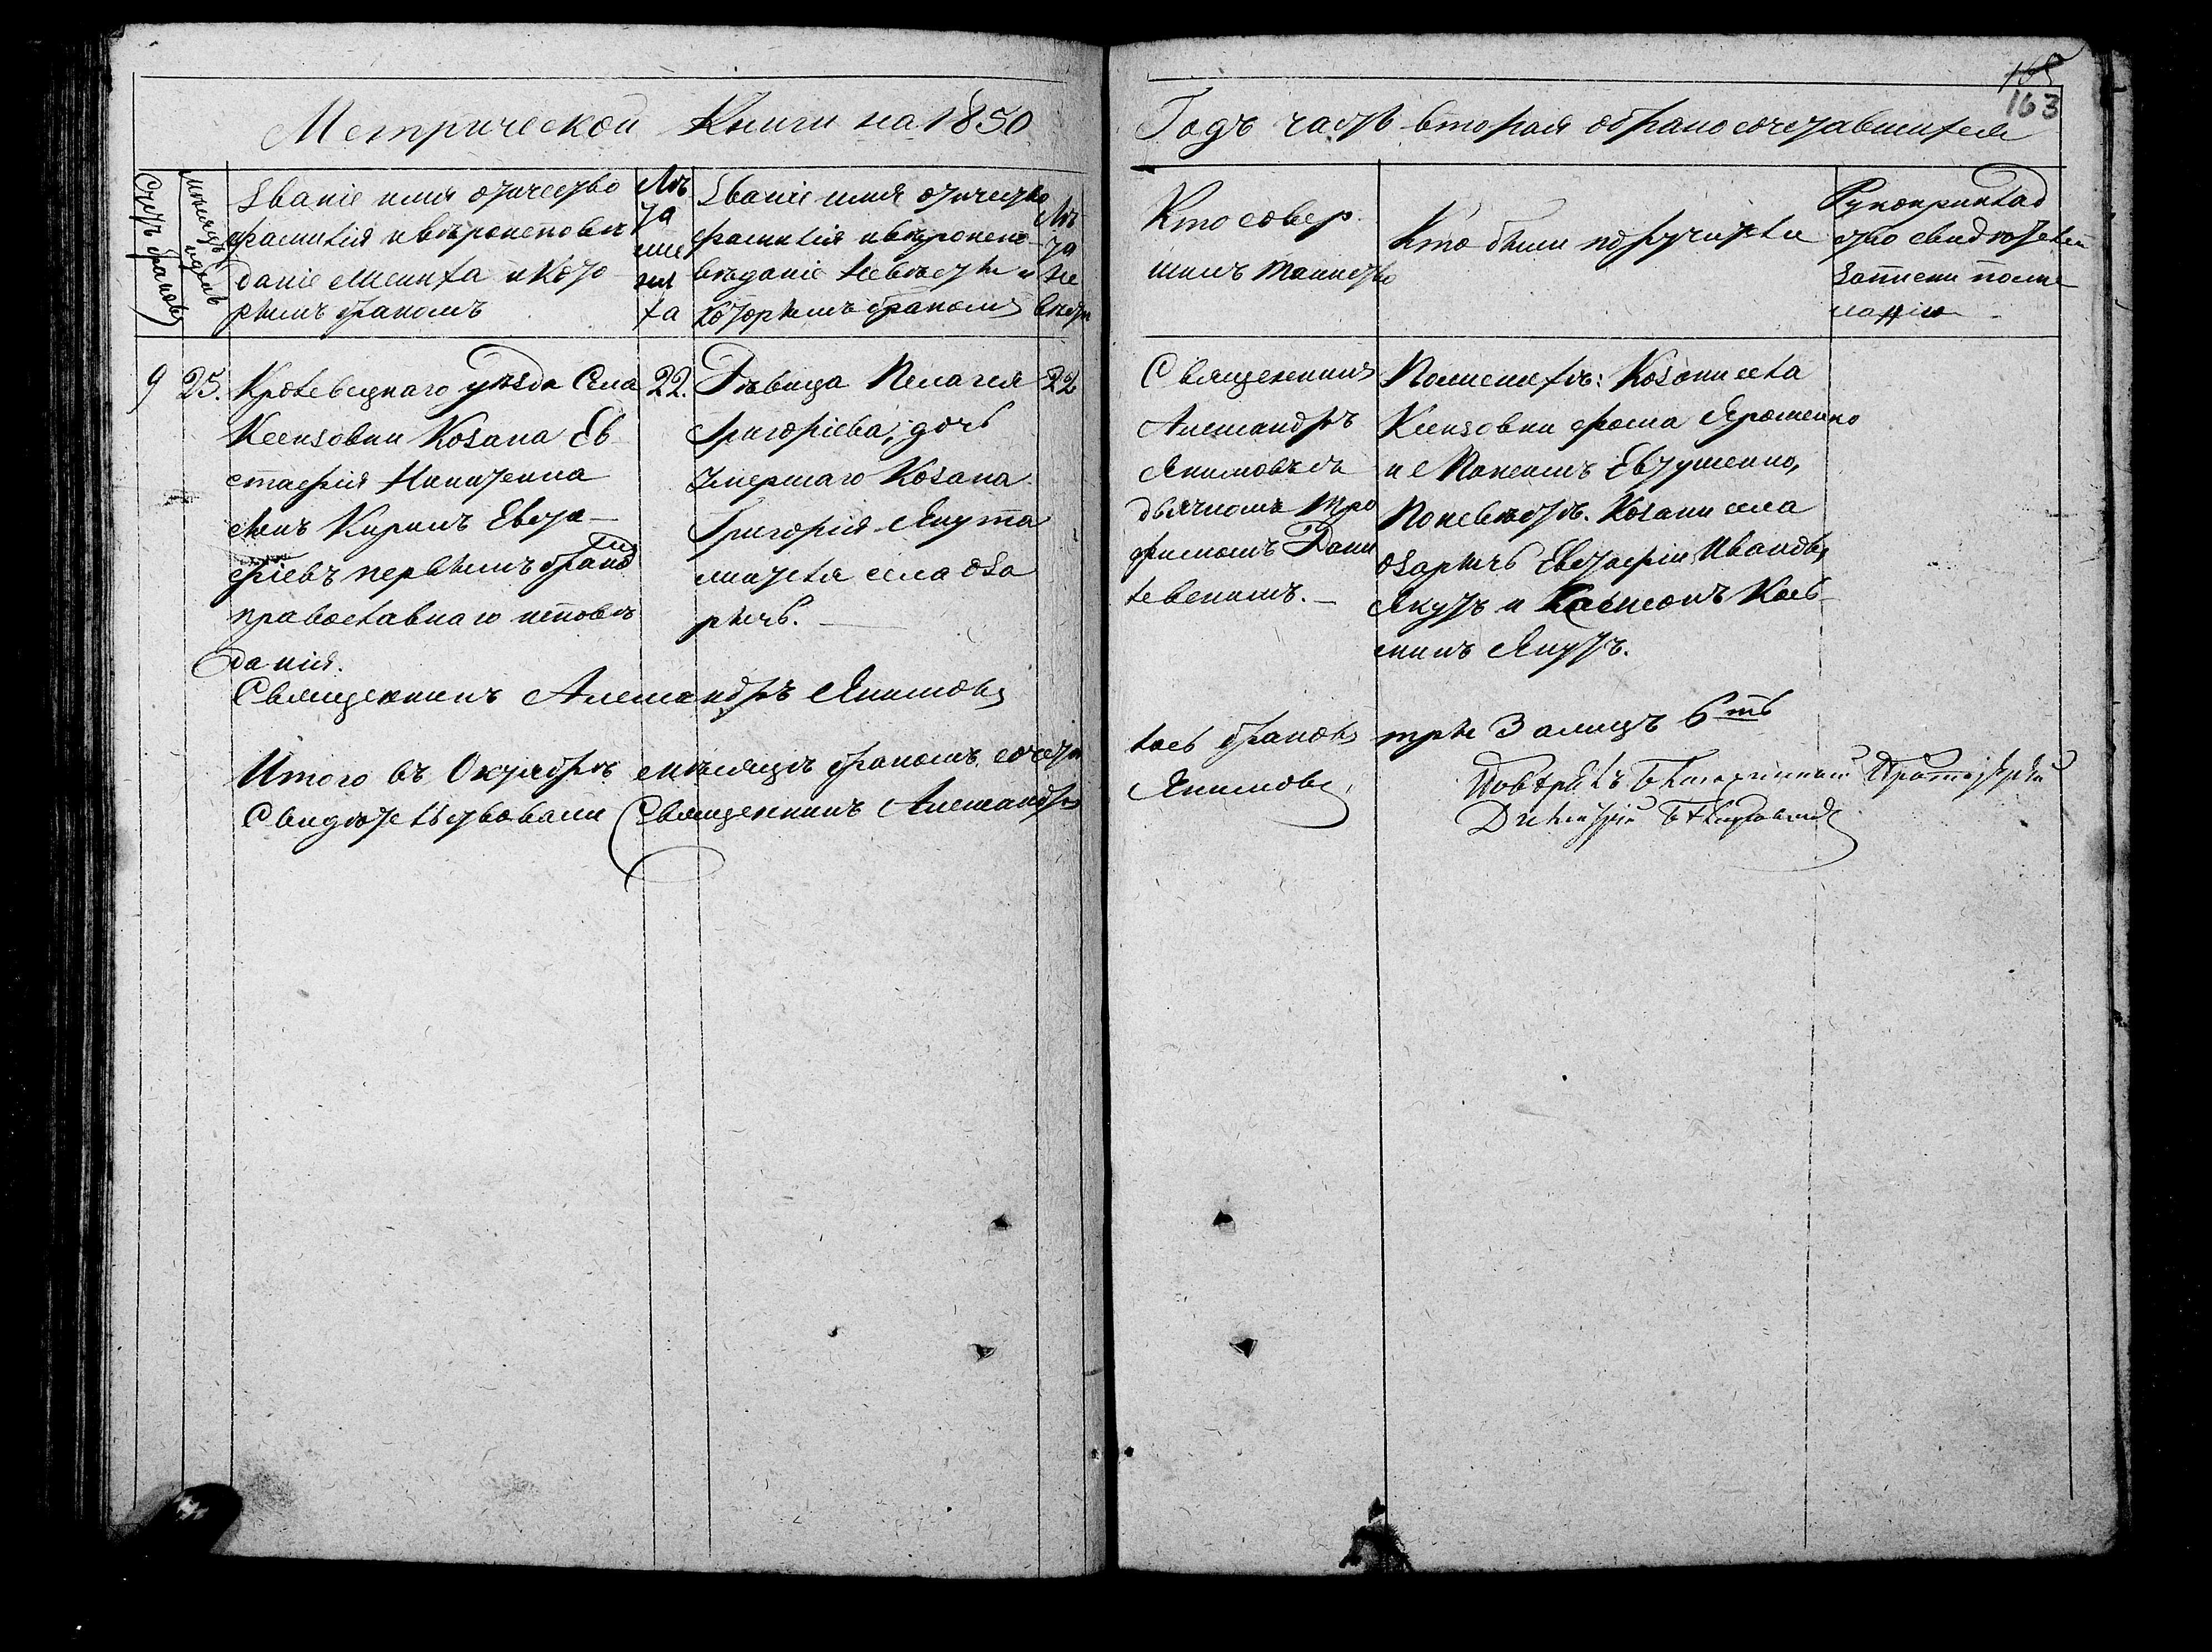 165
163
Метрической Книги на 1850
Годъ часть вторая о бракосочетавшихся
Счетъ браковъ
Мѣсяцъ и день
Званіе имя отчество
фамилія и вѣроисповѣ
даніе жениха и кото
рымъ бракомъ
Лѣ
та
же
ни
ха
Званіе имя отчество
фамилія и вѣроиспо-
вѣданіе невѣсты и
которымъ бракомъ
Лѣ
та
не
вѣсты
Кто совер
шилъ таинство
Кто были поручители
Рукоприклад
ство свидѣтелей
записи по же
ланію
9
25.
Кролевецкаго уѣзда Села
Ксензовки Козака Ев
стафія Никитенка
сынъ Кирилъ Евста-
фіевъ первымъ бракомъ
православнаго исповѣ
данія.
22.
Дѣвица Пелагея
Григоріева, дочь
умершаго Козака
Григорія Якута
жителя села Оза
рычъ.
22
Священникъ
Александръ
Якимовъ съ
дьячкомъ Тро
фимомъ Дани
левскимъ.
По женихѣ: Козаки села
Ксензовки Фома Ярошенко
и Евтушенко,
По невѣстѣ. Козаки села
Озарычъ Евстафій Ивановъ
Якутъ и Якутъ.
Священникъ Александръ Якимовъ
Итого въ Октябрѣ мѣсяцѣ бракомъ сочета
лось браковъ три 3 а лицъ 6ть
Свидѣтельствовали Священникъ Александръ
Якимовъ
Повѣрялъ Благочинный Протоіерей
Димитрій